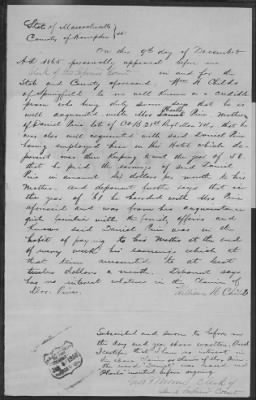 State of Massachusetts
County of Hampden } ss
On this 9th day of December
A.D. 1865 personally appeared before me
Clerk of the Supreme Court in and for the
State and County aforesaid Wm H. Childs
of Springfield to me well known as a credible
person who being duly sworn says that he is
well acquainted with Mrs Prue Mother
of Daniel Prue late of Co 21st Regt Mass Vol, that he
was also well acquainted with said Daniel Prue
being employed him in his Hotel which de-
ponent was then keeping about the year of 58
that he paid the earnings of said Daniel
Prue in amount six dollars per month to his
Mother and deponent further says that in
the year of 61 he boarded with Mrs Prue
aforesaid and was from his acquaintance
quite familiar with the family affairs and
knows said Daniel Prue was in the
habit of paying to his Mother at the end
of every week his earnings which at
that time amounted to at least
twelve dollars a month. Deponent says
he has no interest whatever in the Claim of
Mrs. Prue.
William H Childs
Subscribed and sworn to before me
the day and year above written. And
I certify that I have no interest in
the above claim
before signing
Clerk of
Court